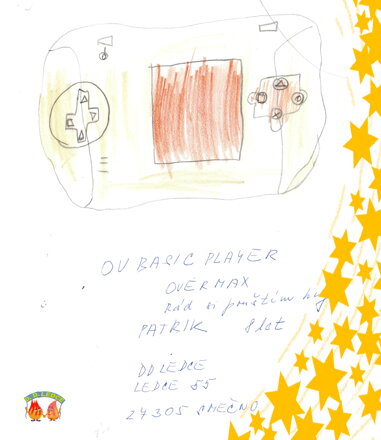 OV BASIC PLAYER
OVERMAX
rád si pouštím hry
PATRIK 8 let
DD LEDCE
LEDCE 55
27305 SMEČNO